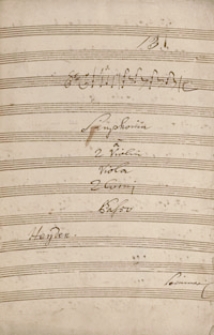 131.
Simphonia
a
2 Violin
Viola
2 Corni
Basso
Hayden.